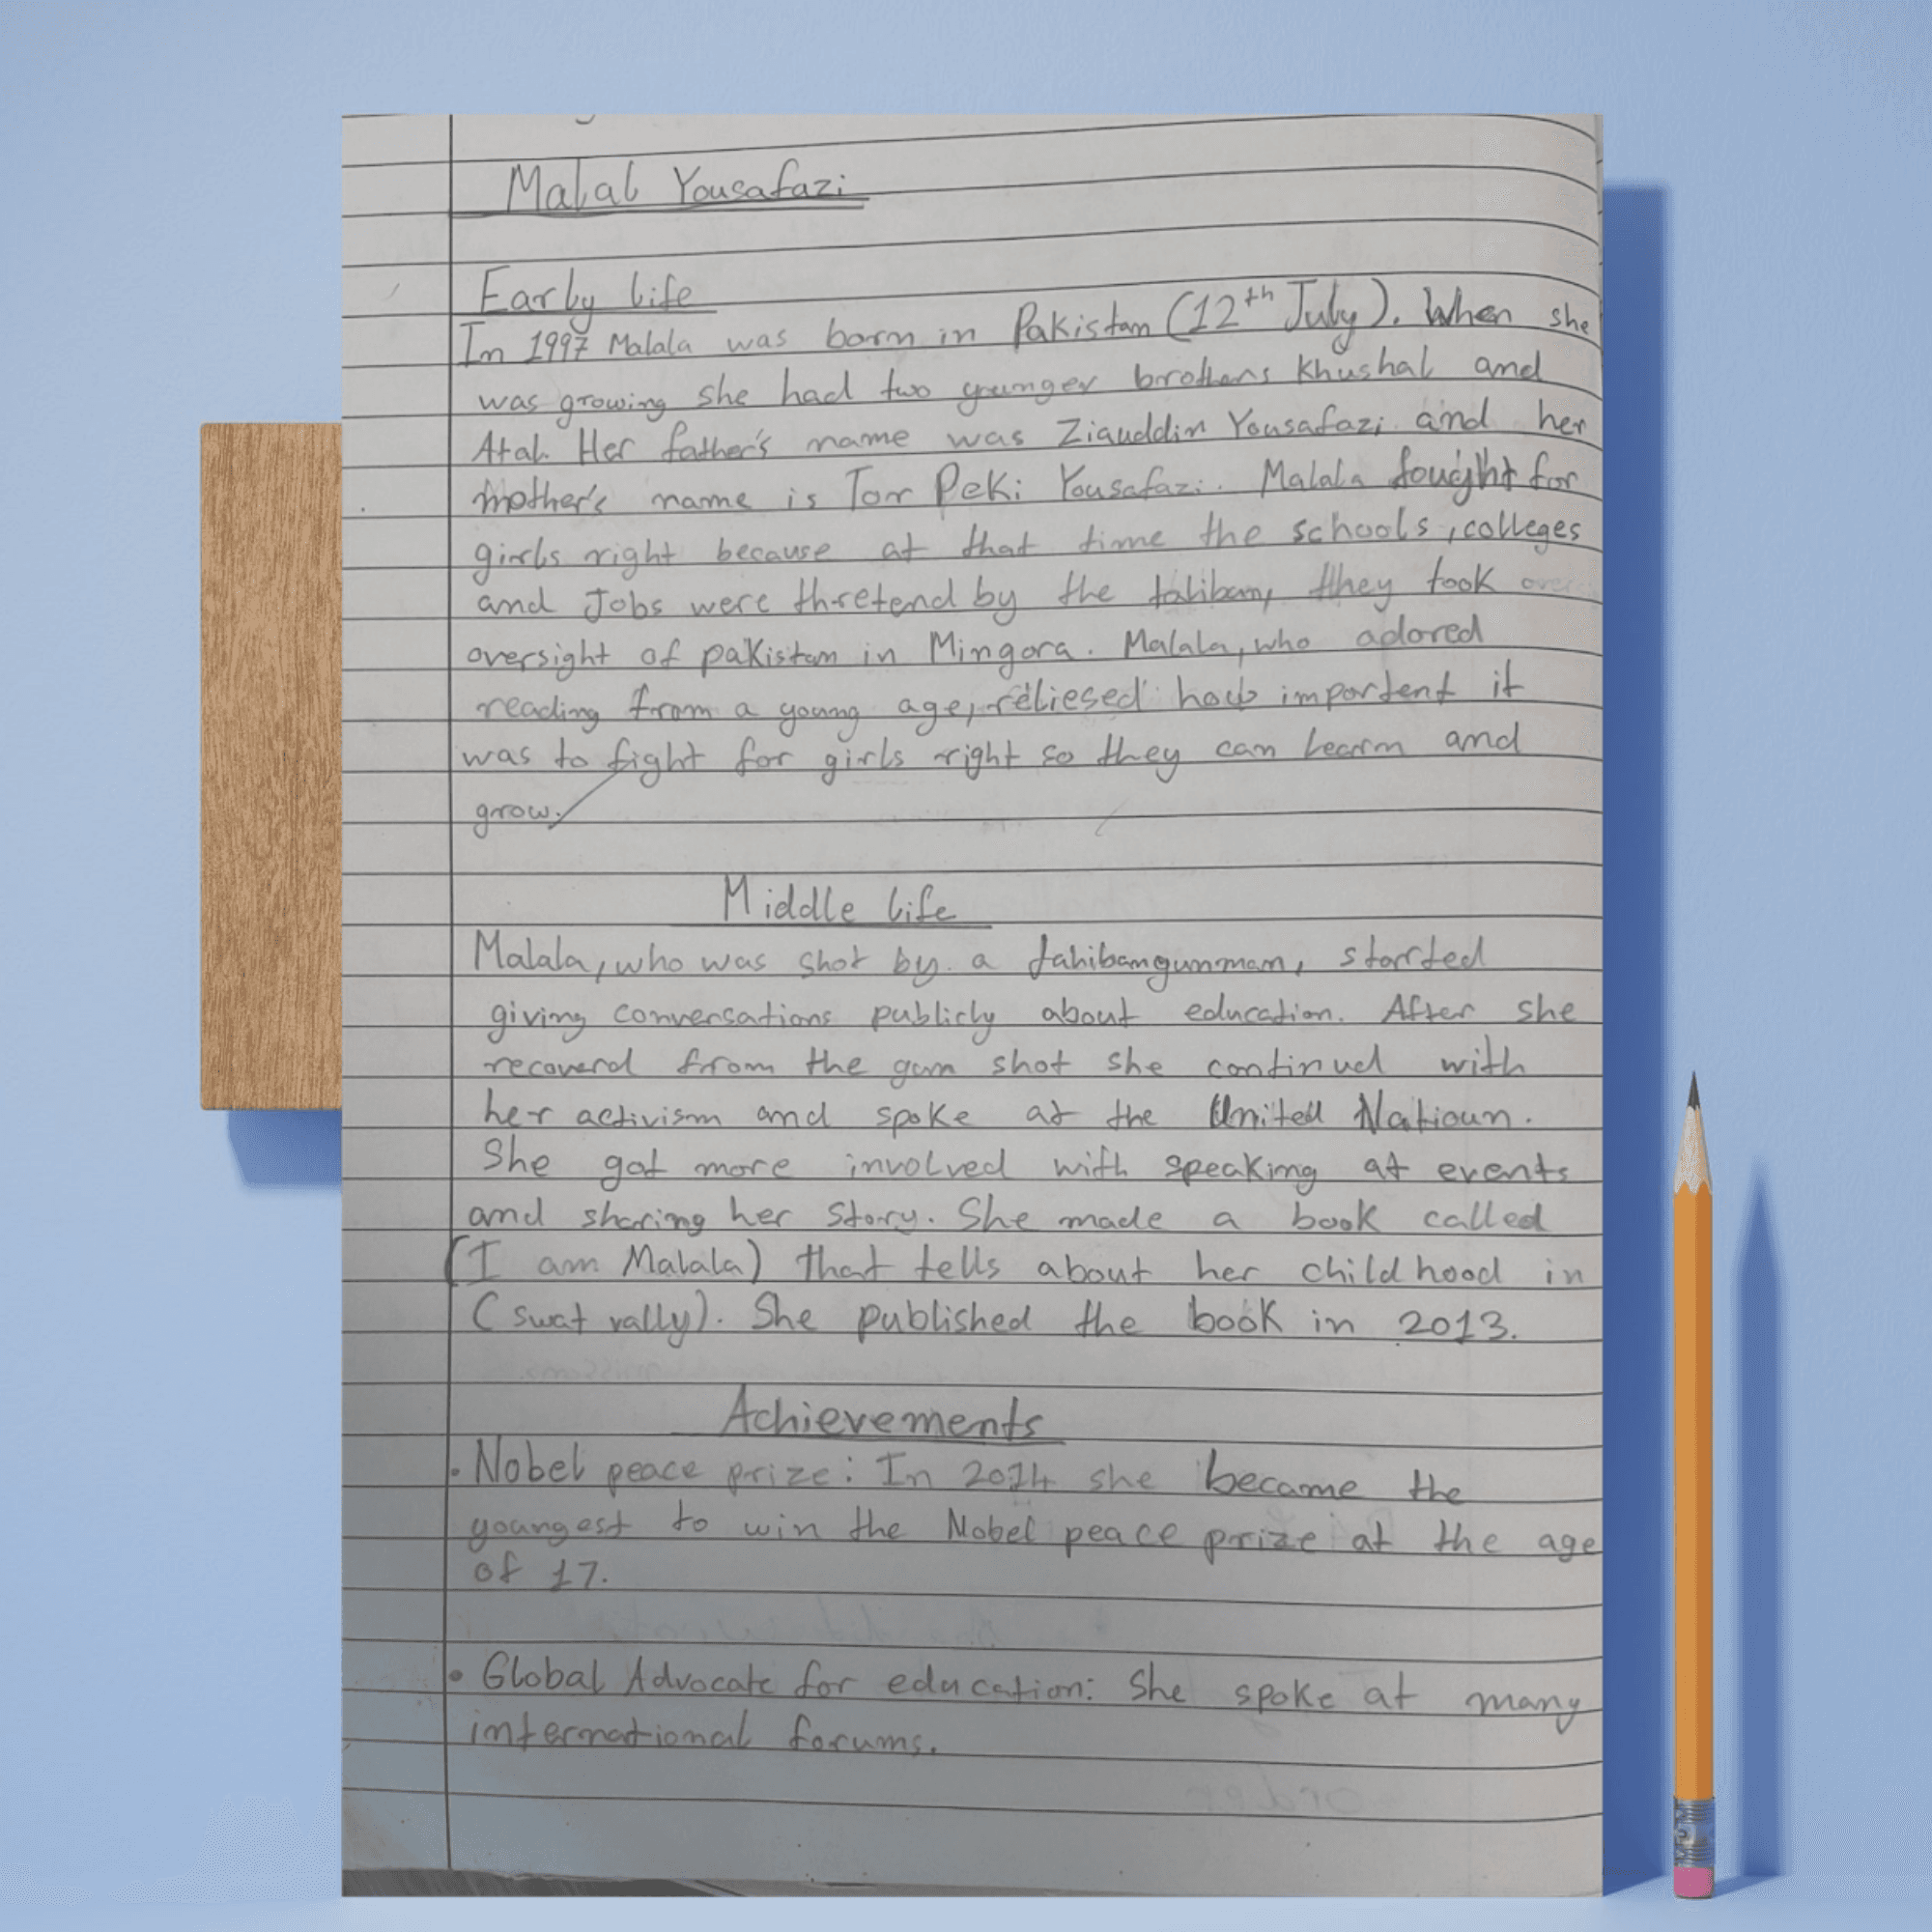 Malal Yousafazi
Early life
In 1997 Malala was born in Pakistan (12th July). When she
was growing she had two younger brothers Khushal and
Atal. Her father's name was Ziauddin Yousafazi and her
mother's name is Tor Peki Yousafazi. Malala fought for
girls right because at that time the schools, colleges
and Jobs were thretend by the taliban, they took over
oversight of pakistan in Mingora. Malala, who adored
reading from a young age, reliesed how importent it
was to fight for girls right so they can learn and
grow.
Middle life
Malala, who was shot by a tahibangunman, started
giving conversations publicly about education. After she
recoverd from the gun shot she continud with
her activism and spoke at the United Natioun.
She got more involved with speaking at events
and sharing her story. She made a book called
(I am Malala) that tells about her childhood in
(swat vally). She published the book in 2013.
Achievements
• Nobel peace prize: In 2014 she became the
youngest to win the Nobel peace prize at the age
of 17.
• Global Advocate for education: She spoke at many
international forums.